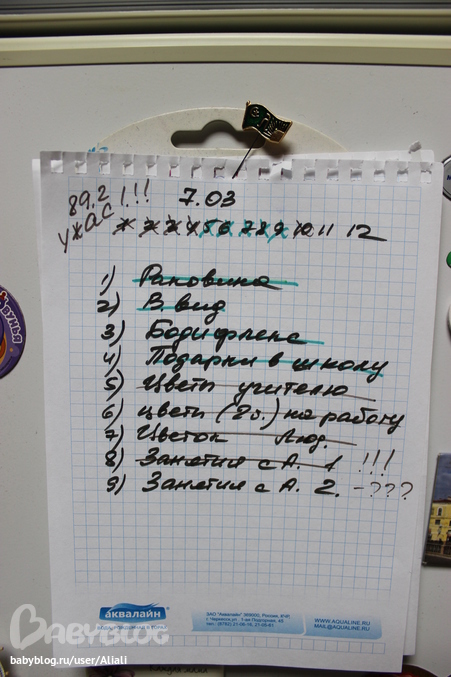 89.2 !!!
ужас
7.03
* 2 3 4 5 6 7 8 9 10 11 12
1) Раковина
2) В. вид
3) Бодифлекс
4) Подарки в школу
5) Цветы учителю
6) цветы (2в.) на работу
7) Цветок Люд.
8) Занятия с А. 1 !!!
9) Занятия с А. 2. - ???
аквалайн
WWW.AQUALINE.RU
MAIL@AQUALINE.RU
BABYBLOG
babyblog.ru/user/Aliali